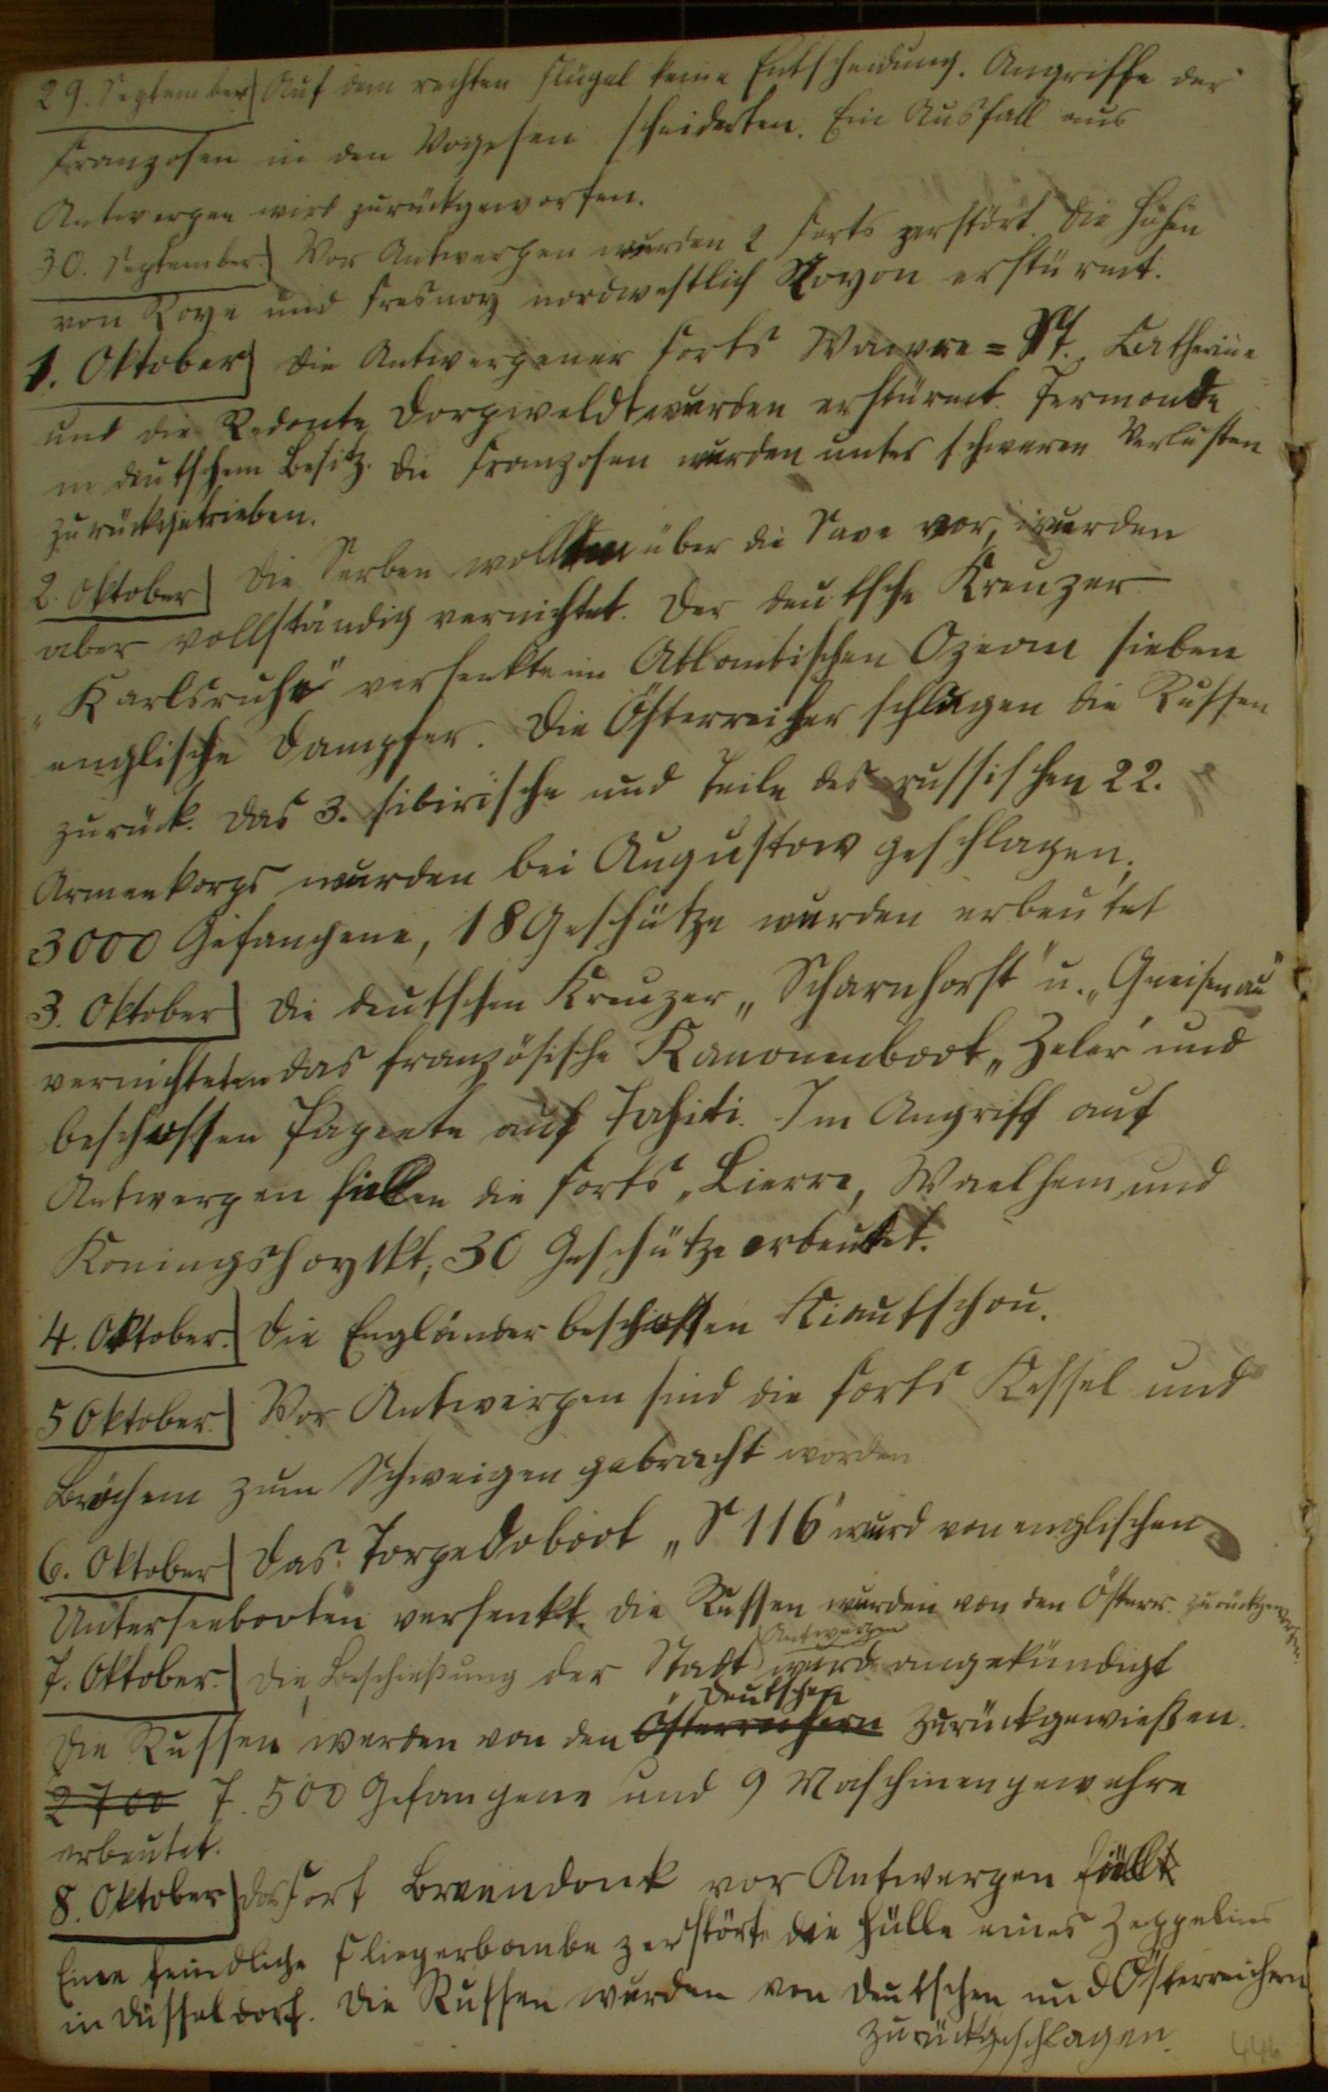 29. September Auf dem rechten Flügel keine Entscheidung. Angriffe der
Franzosen in den Vogesen scheiderten. Ein Ausfall aus
Antwerpen wird zurückgeworfen.
30. September. Vor Antwerpen wurden 2 Forts zerstört. Die Höhen
von Roye und Fresnoy nordwestlich Noyon erstürmt.
1. Oktober Die Antwerpener Forts Wawre=St. Catherine
und die Redonte Dorpweldt wurden erstürmt. Termonde
in deutschem Besitz. Die Franzosen wurden unter schweren Verlusten
zurückgetrieben.
2. Oktober Die Serben wollten über die Save vor, wurden
aber vollständig vernichtet. Der deutsche Kreuzer
„Karlsruhe" versenkte im Atlantischen Ozean sieben
englische Dampfer. Die Österreicher schlagen die Russen
zurück. Das 3. sibirische und Teile des russischen 22.
Armeekorps wurden bei Augustow geschlagen.
3000 Gefangene, 18 Geschütze wurden erbeutet
3. Oktober Die deutschen Kreuzer „Scharnhorst" u. „Gneisenau"
vernichteten das französische Kanonenboot „Zeleé" und
beschossen Papeete auf Tahiti. Im Angriff auf
Antwerpen fielen die Forts „Lierre, Waelhem und
Koningshoyckt, 30 Geschütze erbeutet.
4. Oktober. Die Engländer beschossen Kiautschou.
5 Oktober. Vor Antwerpen sind die Forts Kessel und
Bröchem zum Schweigen gebracht worden
6. Oktober Das Torpedoboot „S 116" wurd von englischen
Unterseebooten versenkt. Die Russen wurden von den Österr. zurückgeworfen.
7. Oktober. Die Beschießung der Stadt Antwerpen wurde angekündigt
Die Russen werden von den Österreichern Deutschen zurückgewießen.
2700 7. 500 Gefangene und 9 Maschinengewehre
erbeutet.
8. Oktober das Fort Breendonk vor Antwerpen fällt
Eine feindliche Fliegerbombe zerstörte die Hülle eines Zeppelins
in Düsseldorf. Die Russen wurden von Deutschen und Österreichern
zurückgeschlagen.
446